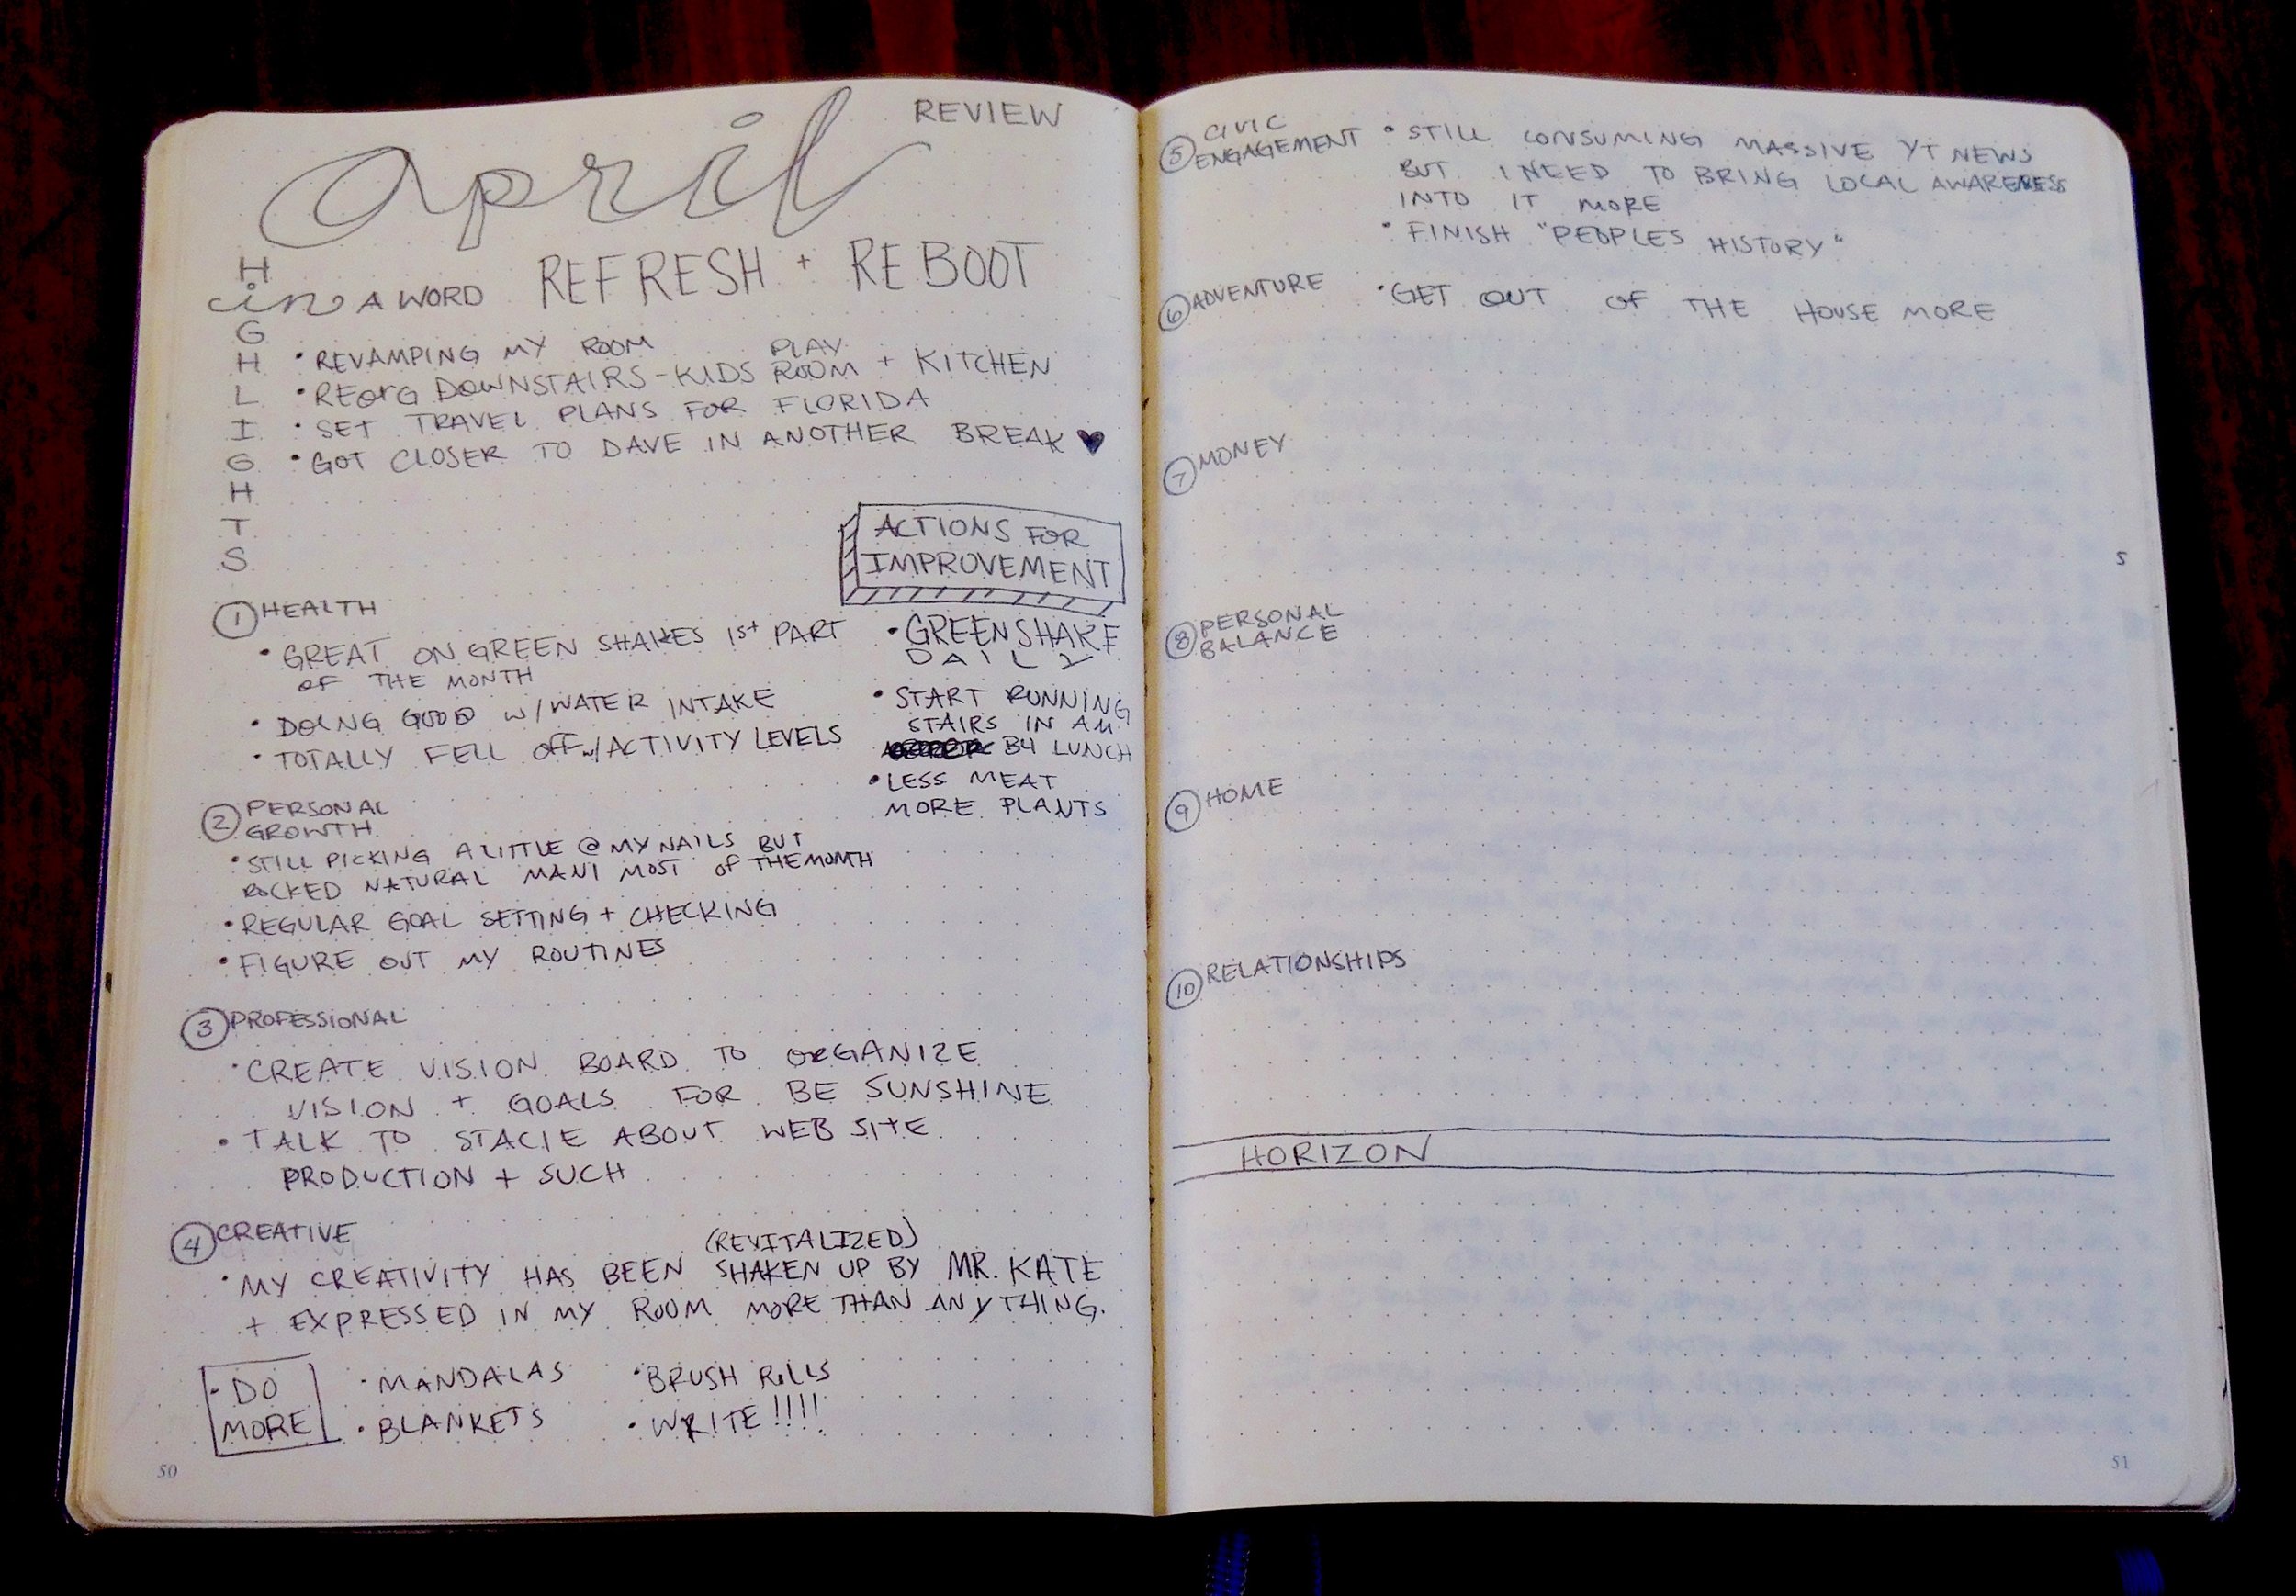 REVIEW
april
in A WORD REFRESH + REBOOT
HIGHLIGHTS
• REVAMPING MY ROOM
• REORG DOWNSTAIRS - KIDS PLAY ROOM + KITCHEN
• SET TRAVEL PLANS FOR FLORIDA
• GOT CLOSER TO DAVE IN ANOTHER BREAK ♥
ACTIONS FOR
IMPROVEMENT
① HEALTH
• GREAT ON GREEN SHAKES 1st PART
OF THE MONTH
• DOING GOOD w/ WATER INTAKE
• TOTALLY FELL OFF w/ ACTIVITY LEVELS
• GREEN SHAKE
DAILY
• START RUNNING
STAIRS IN AM
B4 LUNCH
• LESS MEAT
MORE PLANTS
② PERSONAL
GROWTH
• STILL PICKING A LITTLE @ MY NAILS BUT
ROCKED NATURAL MANI MOST OF THE MONTH
• REGULAR GOAL SETTING + CHECKING
• FIGURE OUT MY ROUTINES
③ PROFESSIONAL
• CREATE VISION BOARD TO ORGANIZE
VISION + GOALS FOR BE SUNSHINE
• TALK TO STACIE ABOUT WEB SITE
PRODUCTION + SUCH
④ CREATIVE
(REVITALIZED)
• MY CREATIVITY HAS BEEN SHAKEN UP BY MR. KATE
+ EXPRESSED IN MY ROOM MORE THAN ANYTHING.
• DO
MORE
• MANDALAS
• BLANKETS
• BRUSH RILLS
• WRITE !!!!
50
⑤ CIVIC
ENGAGEMENT
• STILL CONSUMING MASSIVE YT NEWS
BUT I NEED TO BRING LOCAL AWARENESS
INTO IT MORE
• FINISH "PEOPLES HISTORY"
⑥ ADVENTURE
• GET OUT OF THE HOUSE MORE
⑦ MONEY
S
⑧ PERSONAL
BALANCE
⑨ HOME
⑩ RELATIONSHIPS
HORIZON
51